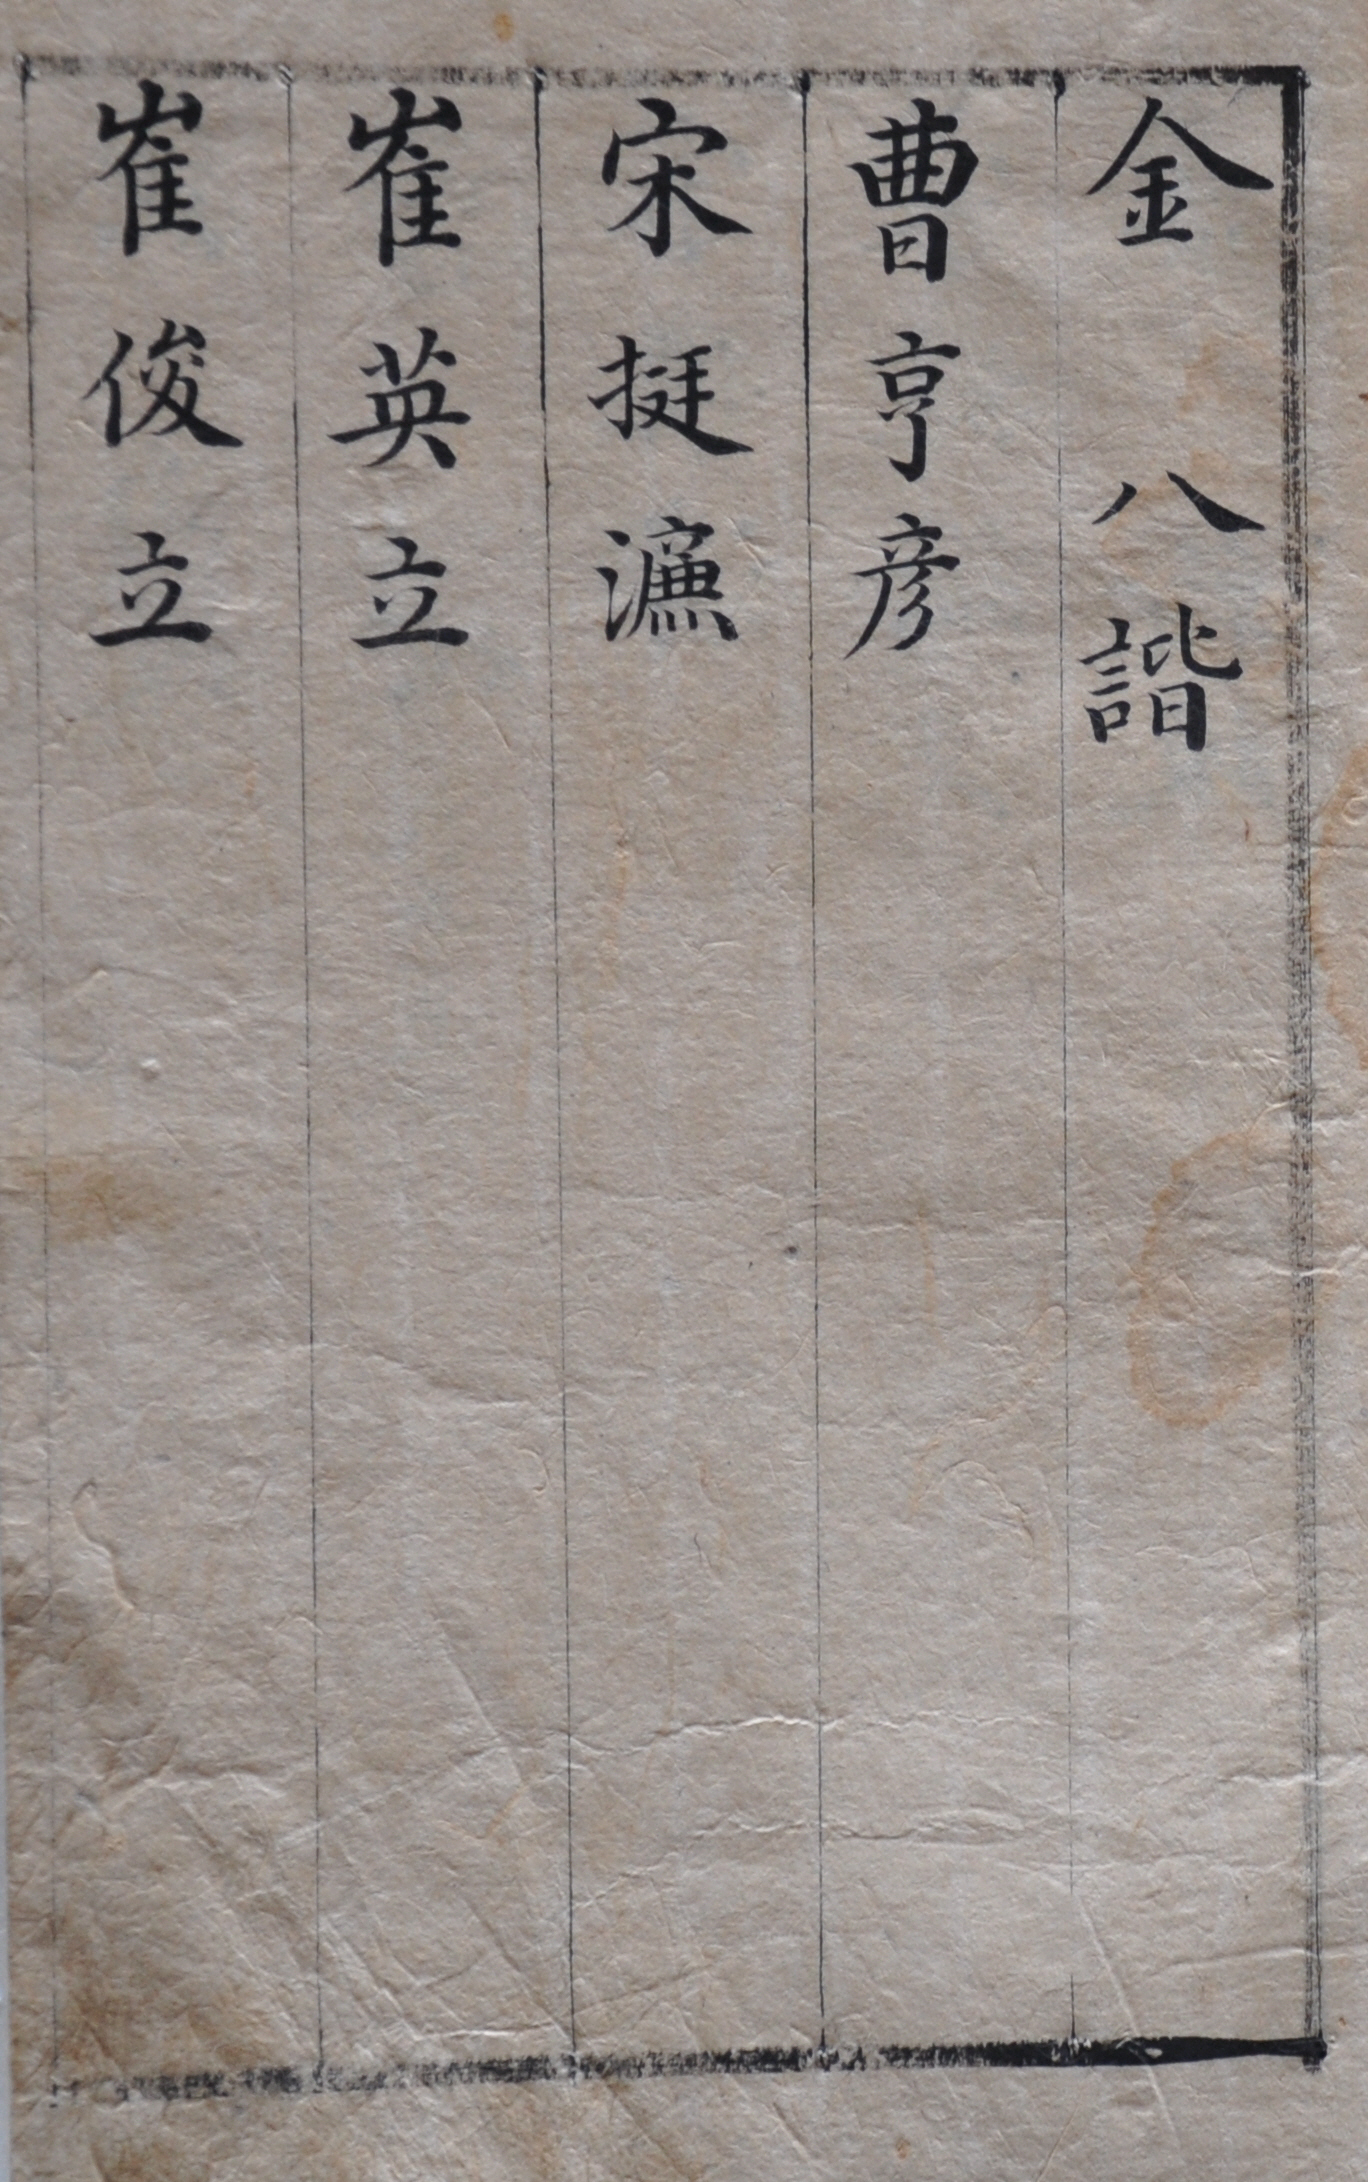 金八諧
曺亨彦
宋挺濂
崔英立
崔俊立